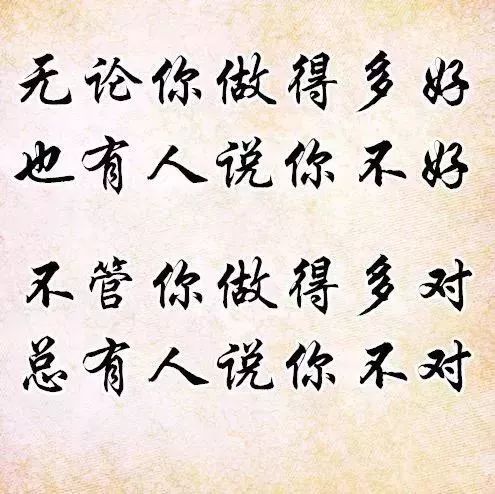 无论你做得多好
也有人说你不好
不管你做得多对
总有人说你不对